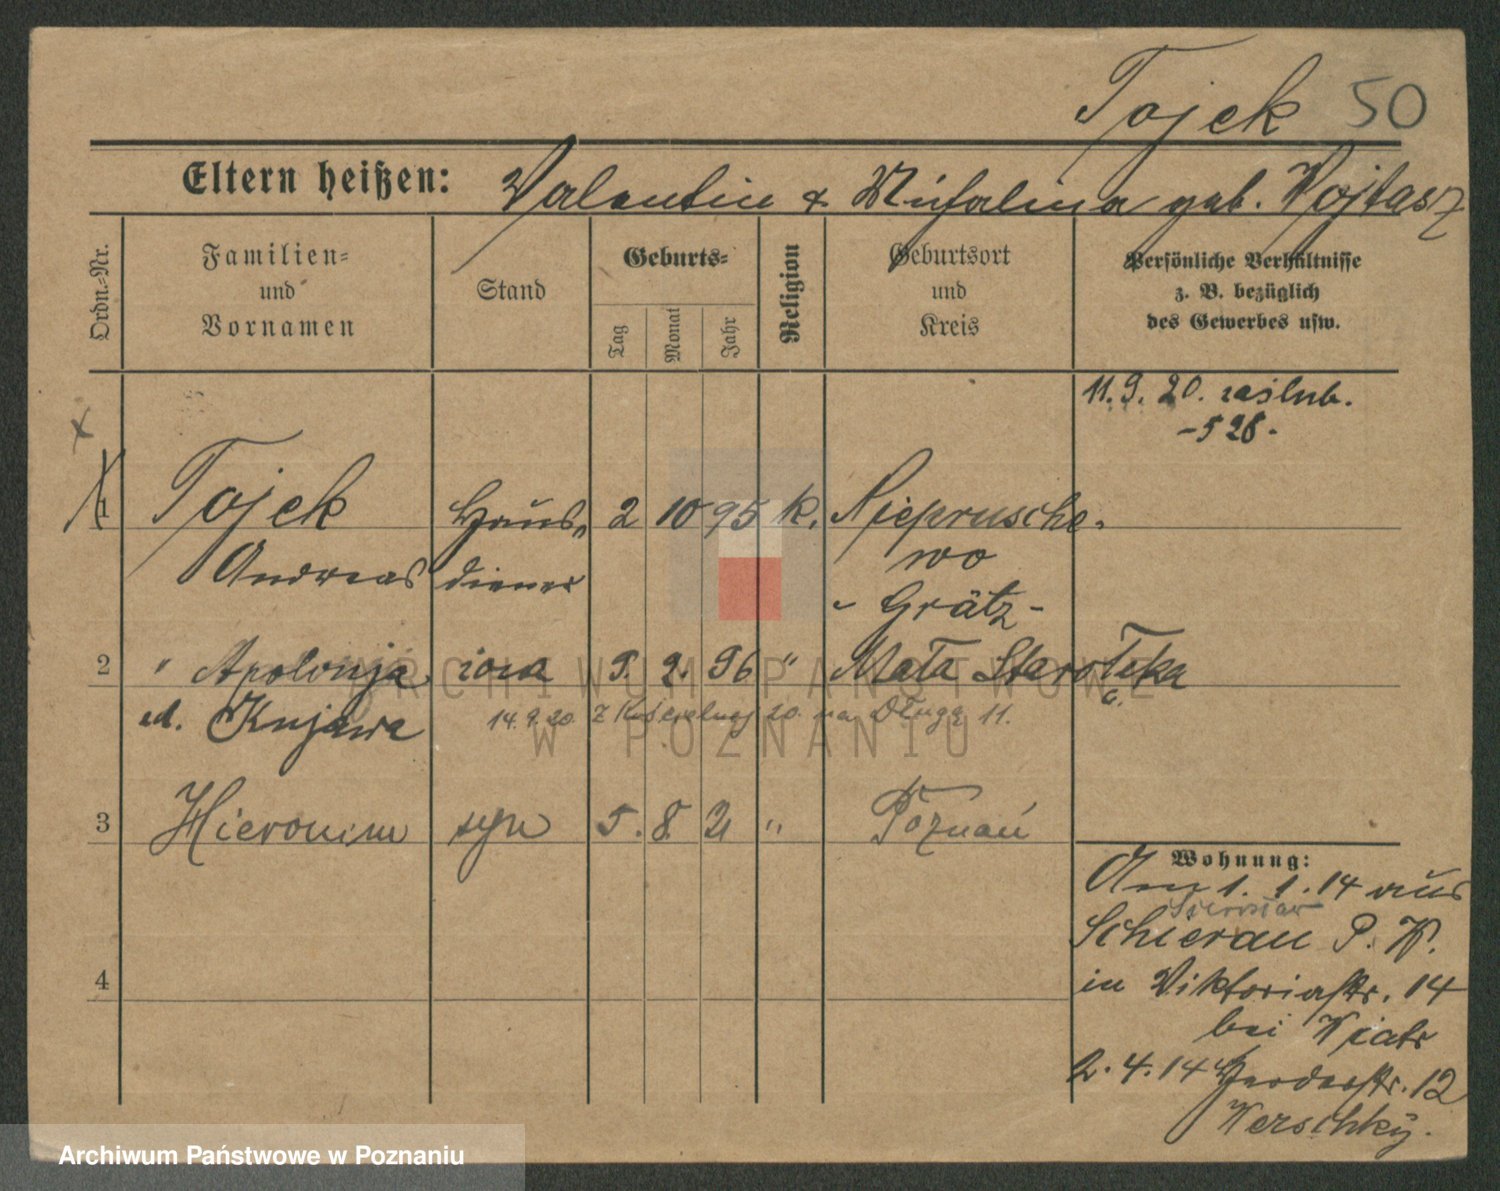 Tojek 50
Eltern heißen: Valentin & Michalina geb. Wojtasz
Ordn.-Nr.
Familien-
und
Vornamen
Stand
Geburts-
Tag
Monat
Jahr
Religion
Geburtsort
und
Kreis
Persönliche Verhältnisse
z. B. bezüglich
des Gewerbes usw.
11. 9. 20. zaślub.
- 528 -
x
1 Tojek Haus- 2 10 95 k. Niepruschе-
Andreas diener wo
- Grätz -
2 " Apolonja żona 9. 2. 96 " Mała Starołęka
ud. Kujawa
14. 9. 20 z 20. na Długą 11.
3 Hieronim syn 5. 8. 21 " Poznań
4
Wohnung:
Am 1. 1. 14 aus
Schierau P. W.
in Viktoriastr. 14
bei Wiatr
2. 4. 14 Herderstr. 12
Werschky.
ARCHIWUM PAŃSTWOWE
W POZNANIU
Archiwum Państwowe w Poznaniu